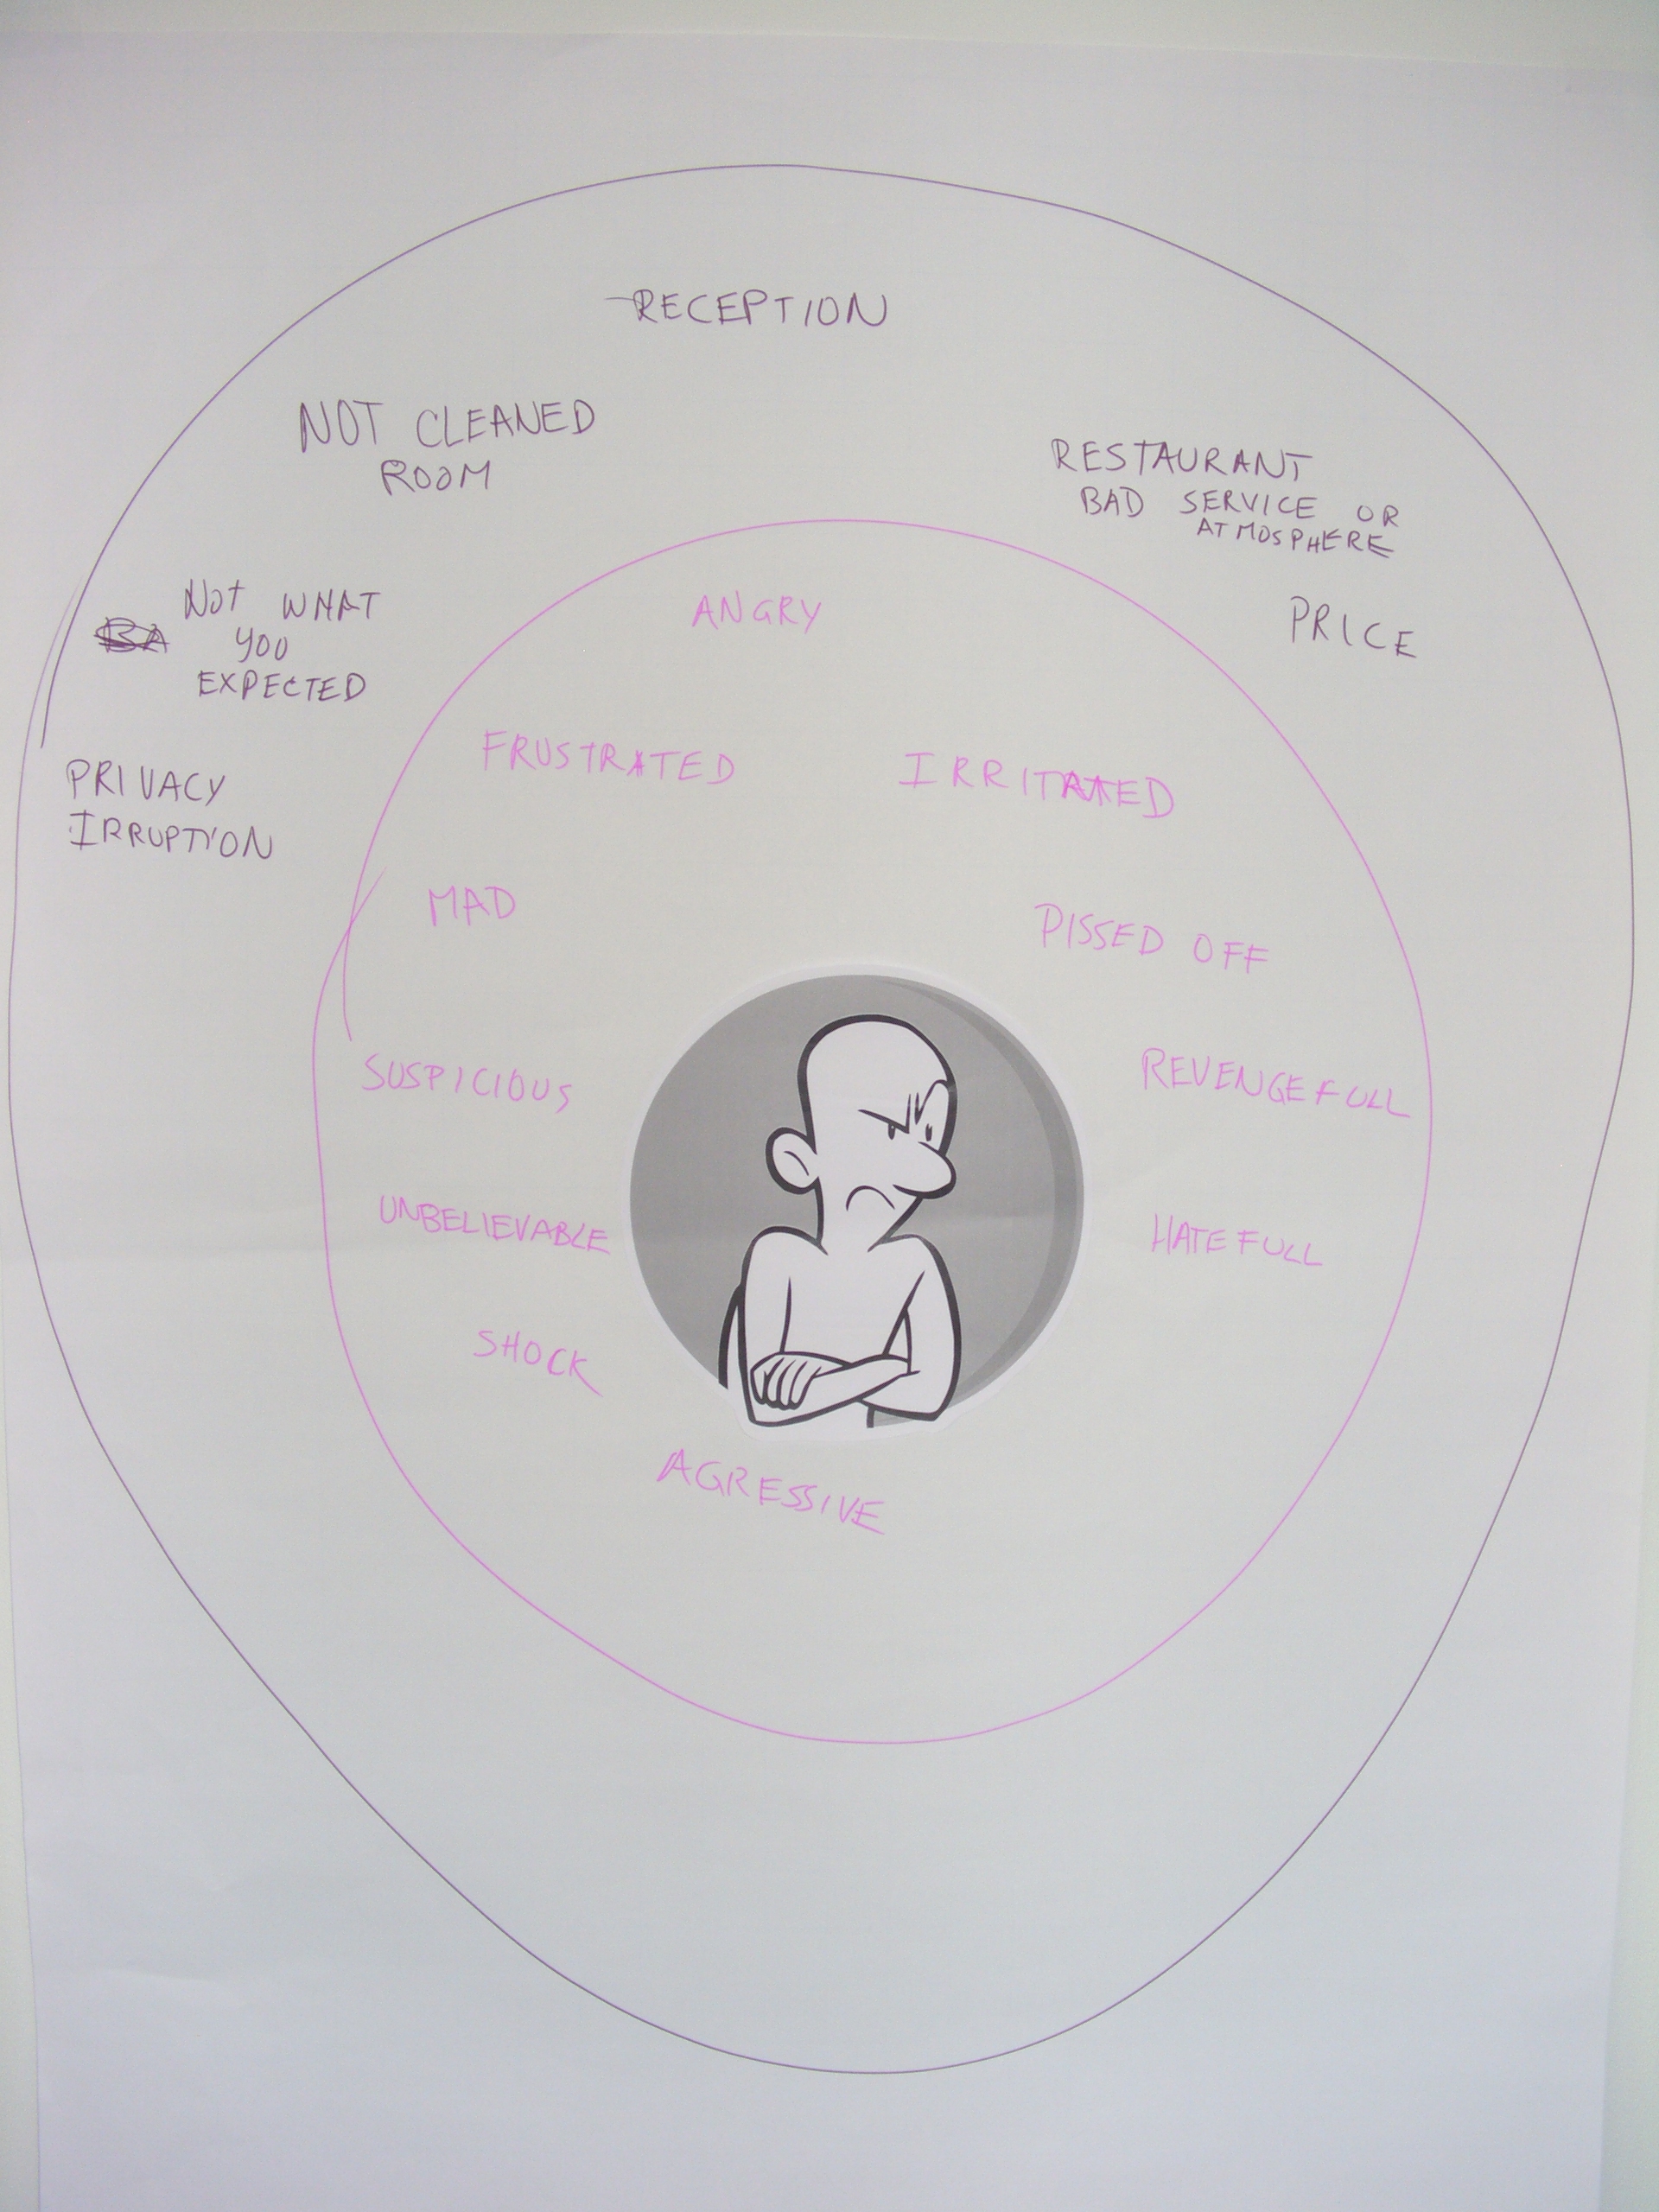 RECEPTION
NOT CLEANED
ROOM
RESTAURANT
BAD SERVICE OR
ATMOSPHERE
Not WHAT
YOU
EXPECTED
PRICE
PRIVACY
IRRUPTION
ANGRY
FRUSTRATED
IRRITATED
MAD
PISSED OFF
SUSPICIOUS
REVENGEFULL
UNBELIEVABLE
HATEFULL
SHOCK
AGRESSIVE